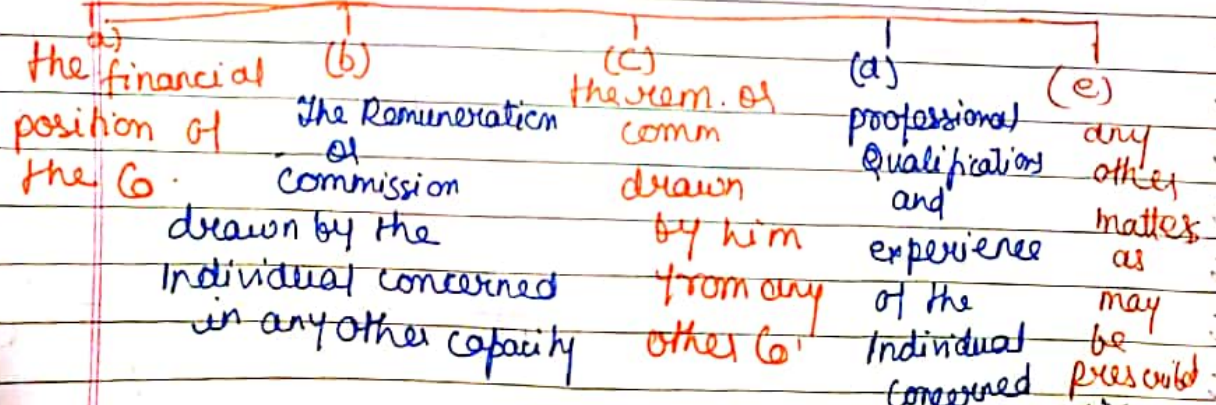 a)
the financial
position of
the Co.
(b)
The Remuneration
or
commission
drawn by the
Individual concerned
in any other capacity
(c)
the rem. or
comm
drawn
by him
from any
other Co.
(d)
professional
Qualifications
and
experience
of the
Individual
concerned
(e)
any
other
matter
as
may
be
prescribed